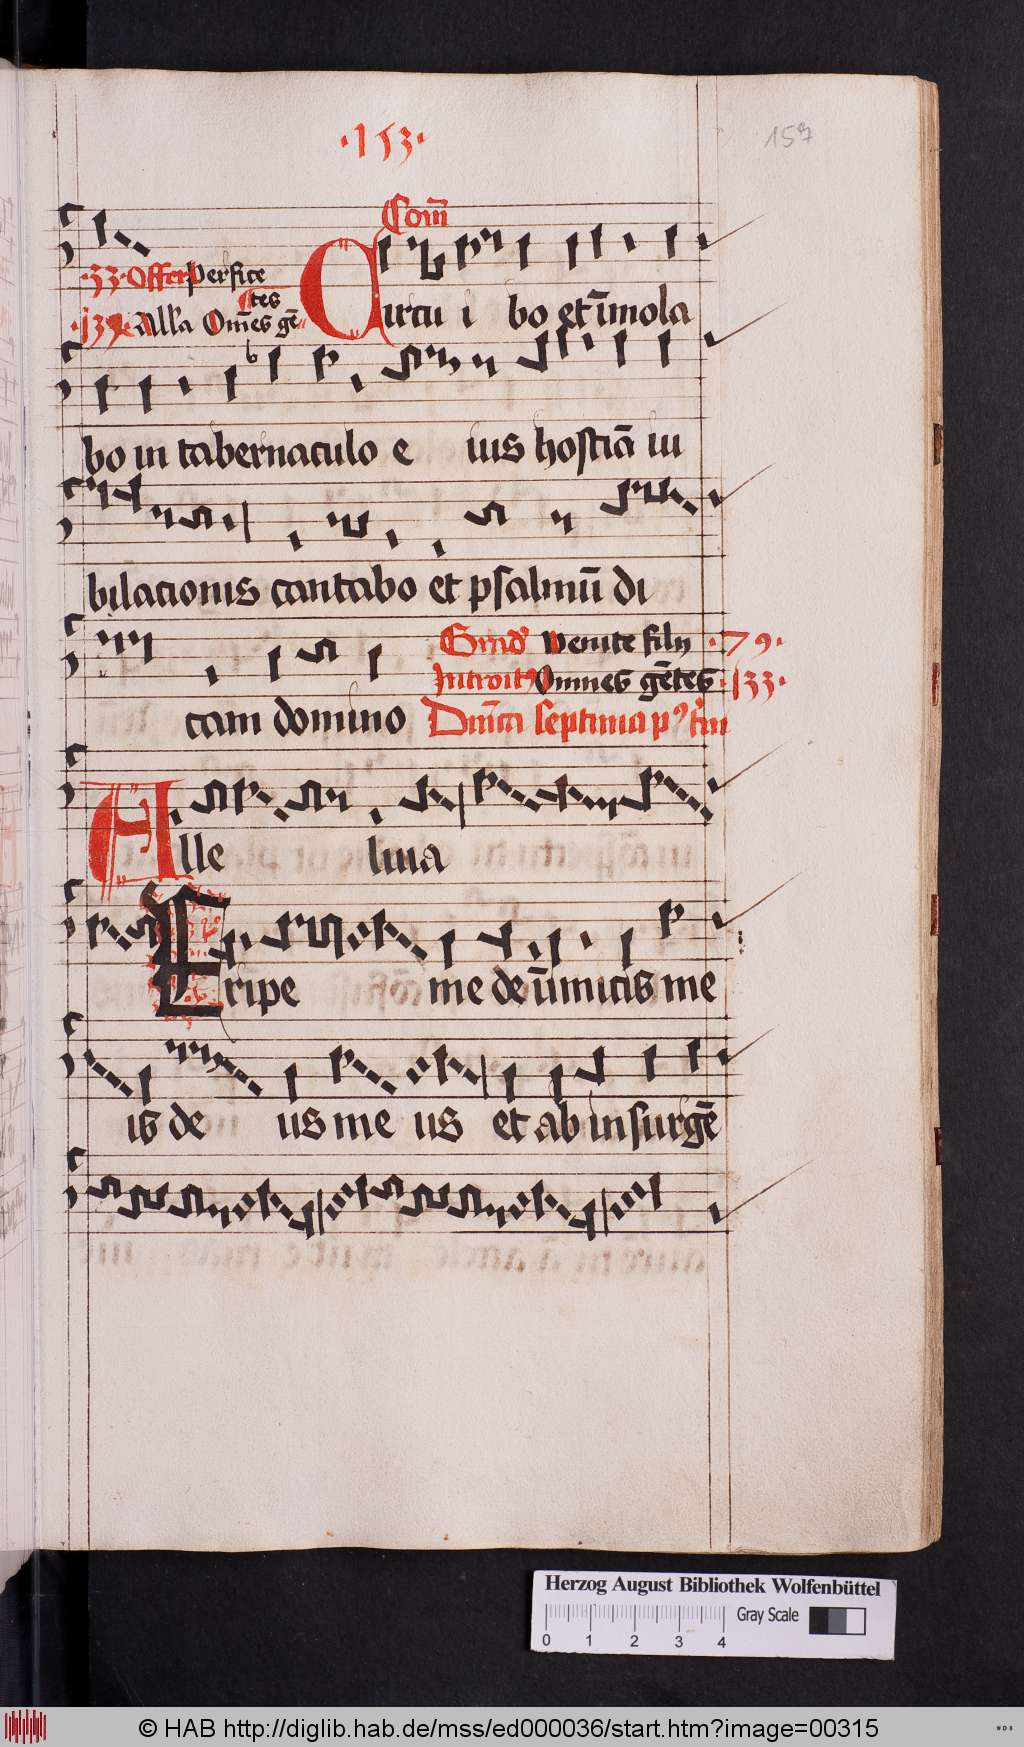 ·153·
157
Com̄
·33· Offer Perficte
tes
·133· All'a Om̄es gē
Circu i bo et ı̄mola
bo in tabernaculo e ius hostiā iu
bilacionis cantabo et psalmū di
Grad' Venite filij ·79·
cam domino
Introit' Omnes gētes ·133·
Dn̄ica septima p' tri
Alle luia
Eripe me de inimicis me
is de us me us et ab insurgē
Herzog August Bibliothek Wolfenbüttel
0 1 2 3 4 Gray Scale
© HAB http://diglib.hab.de/mss/ed000036/start.htm?image=00315